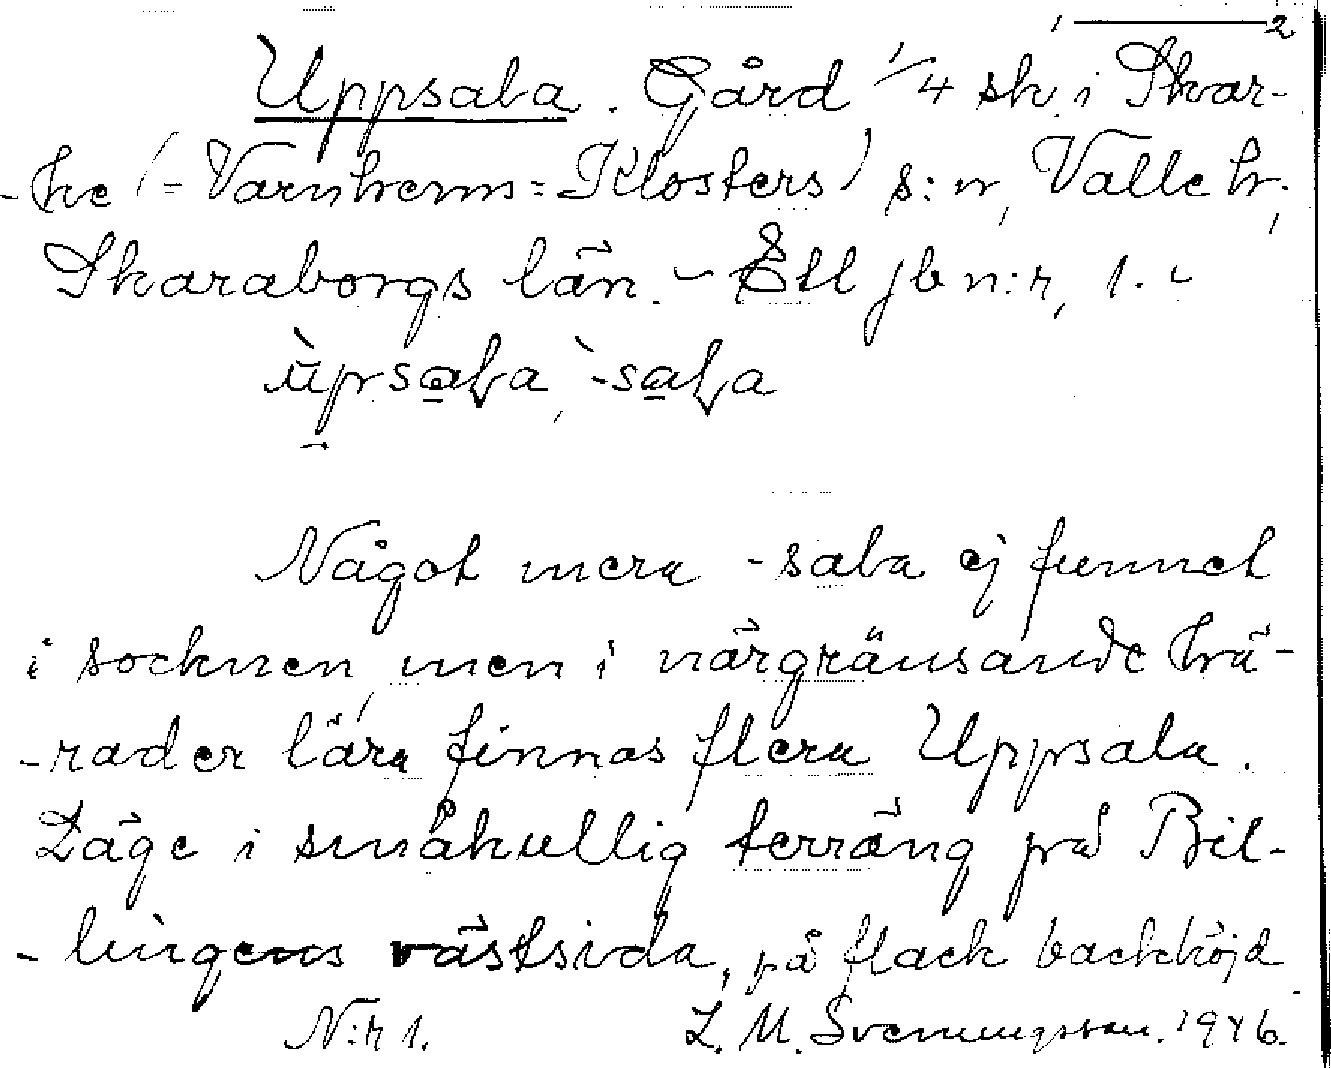 1 ——— 2
Uppsala. Gård 1/4 sk, i Skar-
-ke (=Varnhems=Klosters) s:n, Valle hr.,
Skaraborgs län. - Ett jbn:r, 1. -
ùpsala, `-sala
Något mera -sala ej funnet
i socknen, men i närgränsande hä-
-rader lära finnas flera Uppsala.
Läge i småkullig terräng på Bil-
-lingens västsida, på flack backhöjd.
N:r 1. L. M. Svenungsson. 1946.